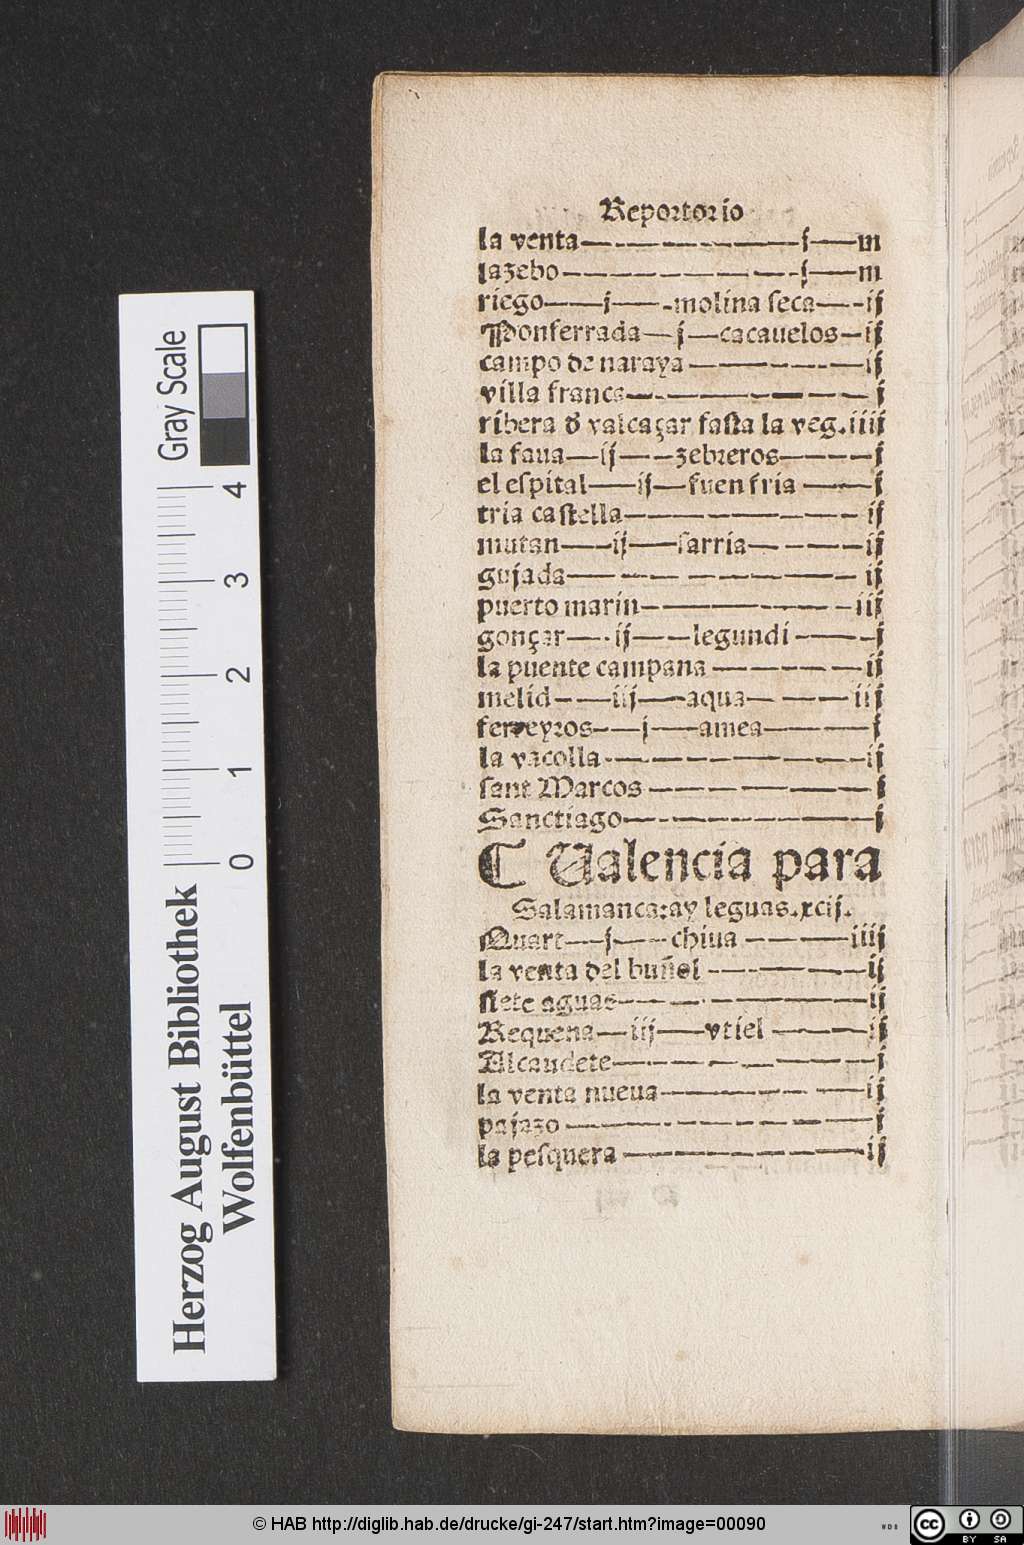 Reportorio
la venta j m
lazebo j m
riego j molina seca ij
Ponferrada j cacauelos ij
campo de naraya ij
villa franca j
ribera d valcaçar fasta la veg. iiij
la faua ij zebreros j
el espital ij fuen fria j
tria castella ij
mutan ij sarria ij
gujada ij
puerto marin iij
gonçar ij legundi j
la puente campana ij
melid iij aqua iij
ferreyros j amea j
la vacolla ij
sant Marcos j
Sanctiago j
C Ualencia para
Salamanca: ay leguas. xcij.
Quart j chiua iiij
la venta del buñol ij
siete aguas ij
Requena iij vtiel ij
Alcaudete j
la venta nueua ij
pajazo j
la pesquera ij
Gray Scale
0 1 2 3 4
Herzog August Bibliothek
Wolfenbüttel
© HAB http://diglib.hab.de/drucke/gi-247/start.htm?image=00090
WDB
cc BY SA